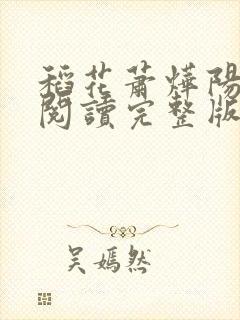 稻花蕭燁陽
閱讀完整版
吳嫣然